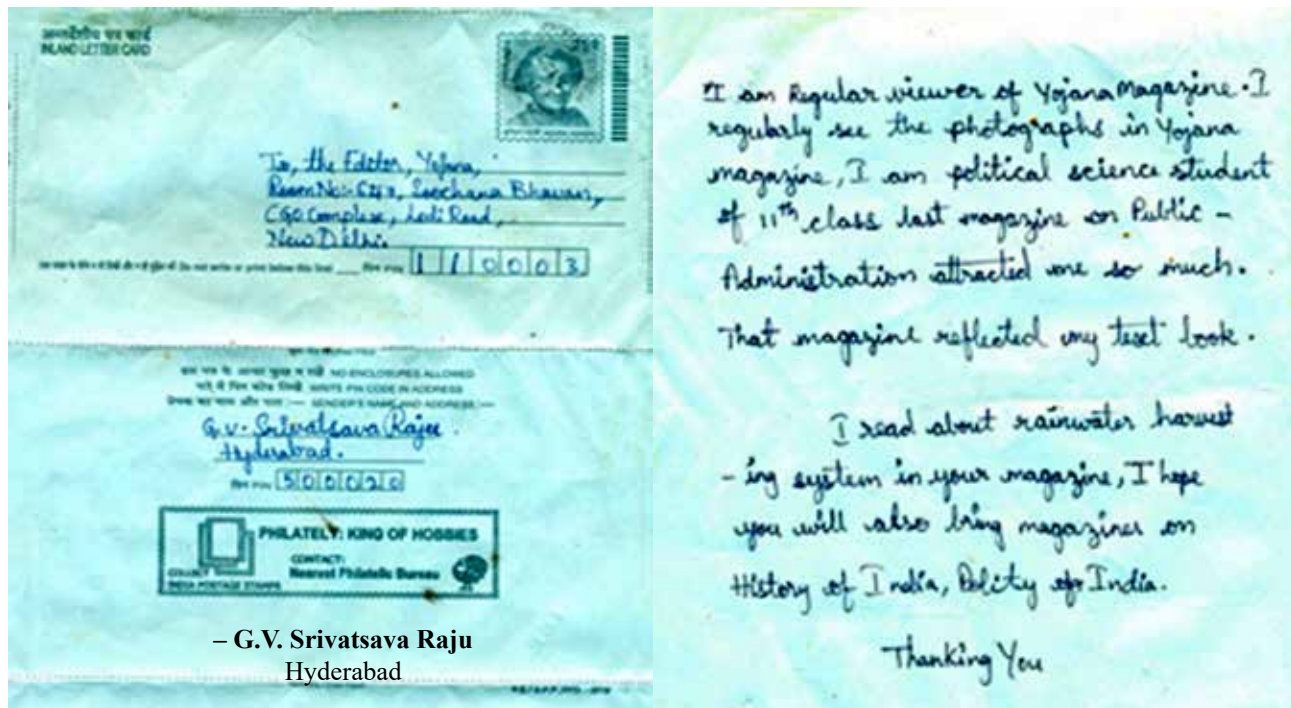 अन्तर्देशीय पत्र कार्ड
INLAND LETTER CARD
To, the Editor, Yojana,
Room No:- 648, Soochana Bhavan,
CGO Complex, Lodi Road,
New Delhi.
(Do not write or print below this line)
110003
NO ENCLOSURES ALLOWED
WRITE PIN CODE IN ADDRESS
SENDER'S NAME AND ADDRESS:—
G.V. Srivatsava Raju.
Hyderabad.
500020
PHILATELY: KING OF HOBBIES
CONTACT:
Nearest Philatelic Bureau
COLLECT
INDIA POSTAGE STAMPS
– G.V. Srivatsava Raju
Hyderabad
I am Regular viewer of Yojana Magazine. I
regularly see the photographs in Yojana
magazine, I am political science student
of 11th class last magazine on Public –
Administration attracted me so much.
That magazine reflected my text book.
I read about rainwater harvest
- ing system in your magazine, I hope
you will also bring magazines on
History of India, Polity of India.
Thanking You